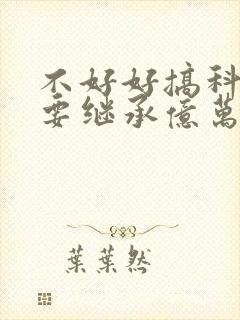 不好好搞科
要继承億萬
葉葉然